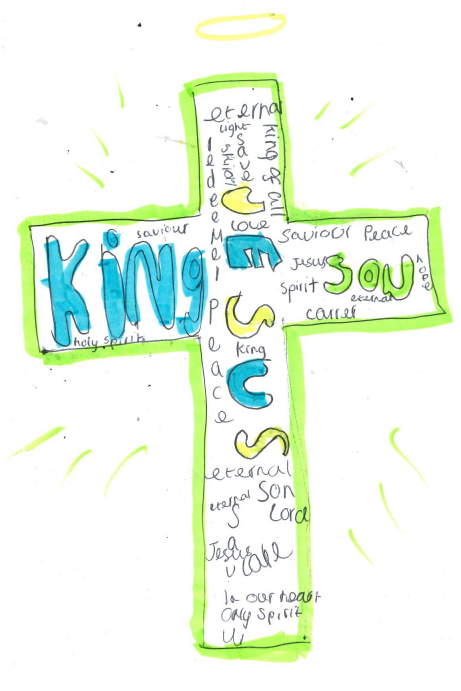 eternal
light
saviour
king of all
redeemer
peace
JESUS
love
king
saviour
King
holy spirit
Saviour Peace
Jesus
SON
hope
spirit
eternal
carrer
eternal
eternal
Son
Lord
Jesus
care
In our heart
only spirit